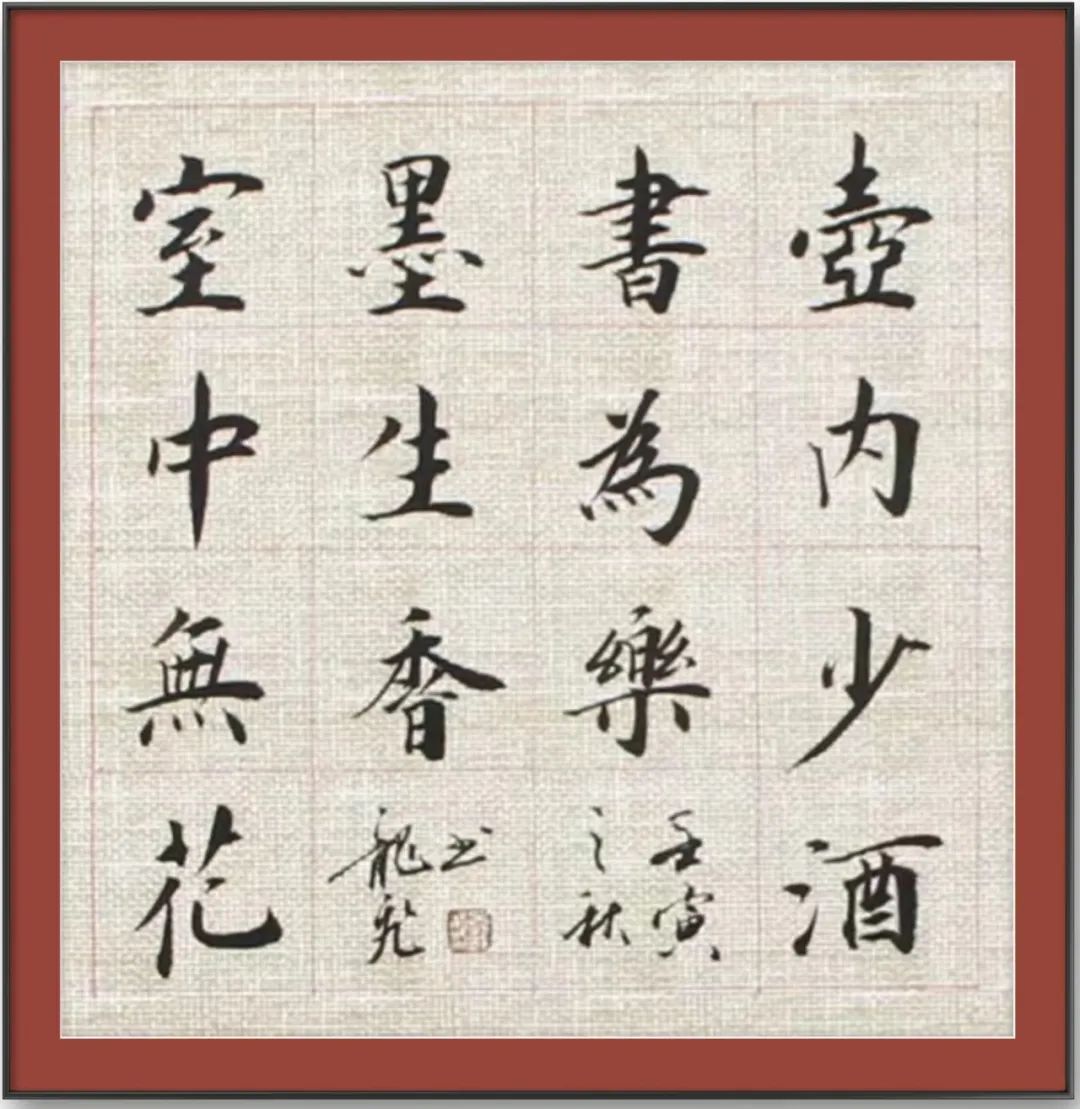 壺内少酒
書為樂
壬寅
之秋
墨生香
书
龍
室中無花